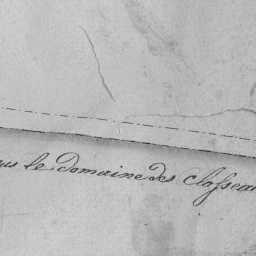 us le domaine des classeau